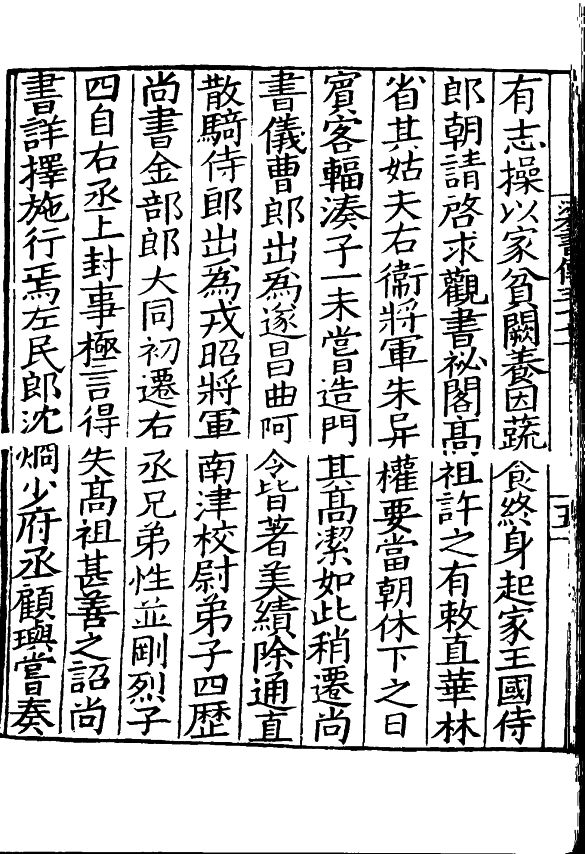 有志操以家貧闕養因蔬食終身起家王國侍
郎朝請啓求觀書祕閣高祖許之有敕直華林
省其姑夫右衞將軍朱异權要當朝休下之日
賓客輻湊子一未嘗造門其高潔如此稍遷尚
書儀曹郎出為遂昌曲阿令皆著美績除通直
散騎侍郎出為戎昭將軍南津校尉弟子四歷
尚書金部郎大同初遷右丞兄弟性並剛烈子
四自右丞上封事極言得失高祖甚善之詔尚
書詳擇施行焉左民郎沈炯少府丞顧璵嘗奏